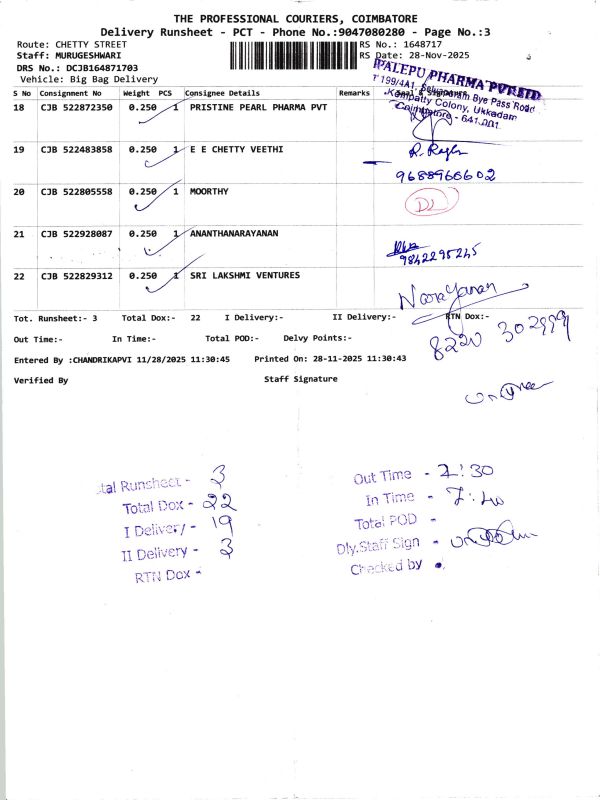 THE PROFESSIONAL COURIERS, COIMBATORE
Delivery Runsheet - PCT - Phone No.:9047080280 - Page No.:3
Route: CHETTY STREET RS No.: 1648717
Staff: MURUGESHWARI RS Date: 28-Nov-2025
DRS No.: DCJB164871703
Vehicle: Big Bag Delivery
PALEPU PHARMA PVT LTD
Bye Pass Road
Colony, Ukkadam
Coimbatore - 641 001.
S No Consignment No Weight PCS Consignee Details Remarks
18 CJB 522872350 0.250 1 PRISTINE PEARL PHARMA PVT
19 CJB 522483858 0.250 1 E E CHETTY VEETHI
9688966602
20 CJB 522805558 0.250 1 MOORTHY
DL
21 CJB 522928087 0.250 1 ANANTHANARAYANAN
9842295245
22 CJB 522829312 0.250 1 SRI LAKSHMI VENTURES
Narayanan
Tot. Runsheet:- 3 Total Dox:- 22 I Delivery:- II Delivery:- RTN Dox:-
8220 302999
Out Time:- In Time:- Total POD:- Delvy Points:-
Entered By :CHANDRIKAPVI 11/28/2025 11:30:45 Printed On: 28-11-2025 11:30:43
Verified By Staff Signature
tal Runsheet - 3
Total Dox - 22
I Delivery - 19
II Delivery - 3
RTN Dox -
Out Time - 2:30
In Time - 7:40
Total POD -
Dly.Staff Sign -
Checked by